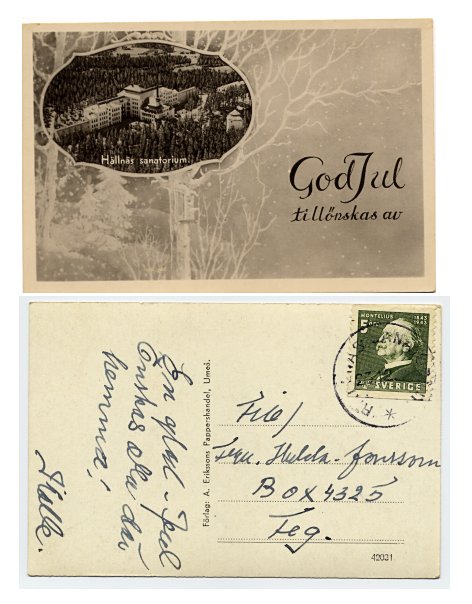 Hällnäs sanatorium.
God Jul
tillönskas av
MONTELIUS 1843
5 ÖRE 1943
SVERIGE
En glad-Jul
önskas Du där
hemma!
Förlag: A. Erikssons Pappershandel, Umeå.
Till/
Hulda Jonsson
BOX 4325
Teg.
42031